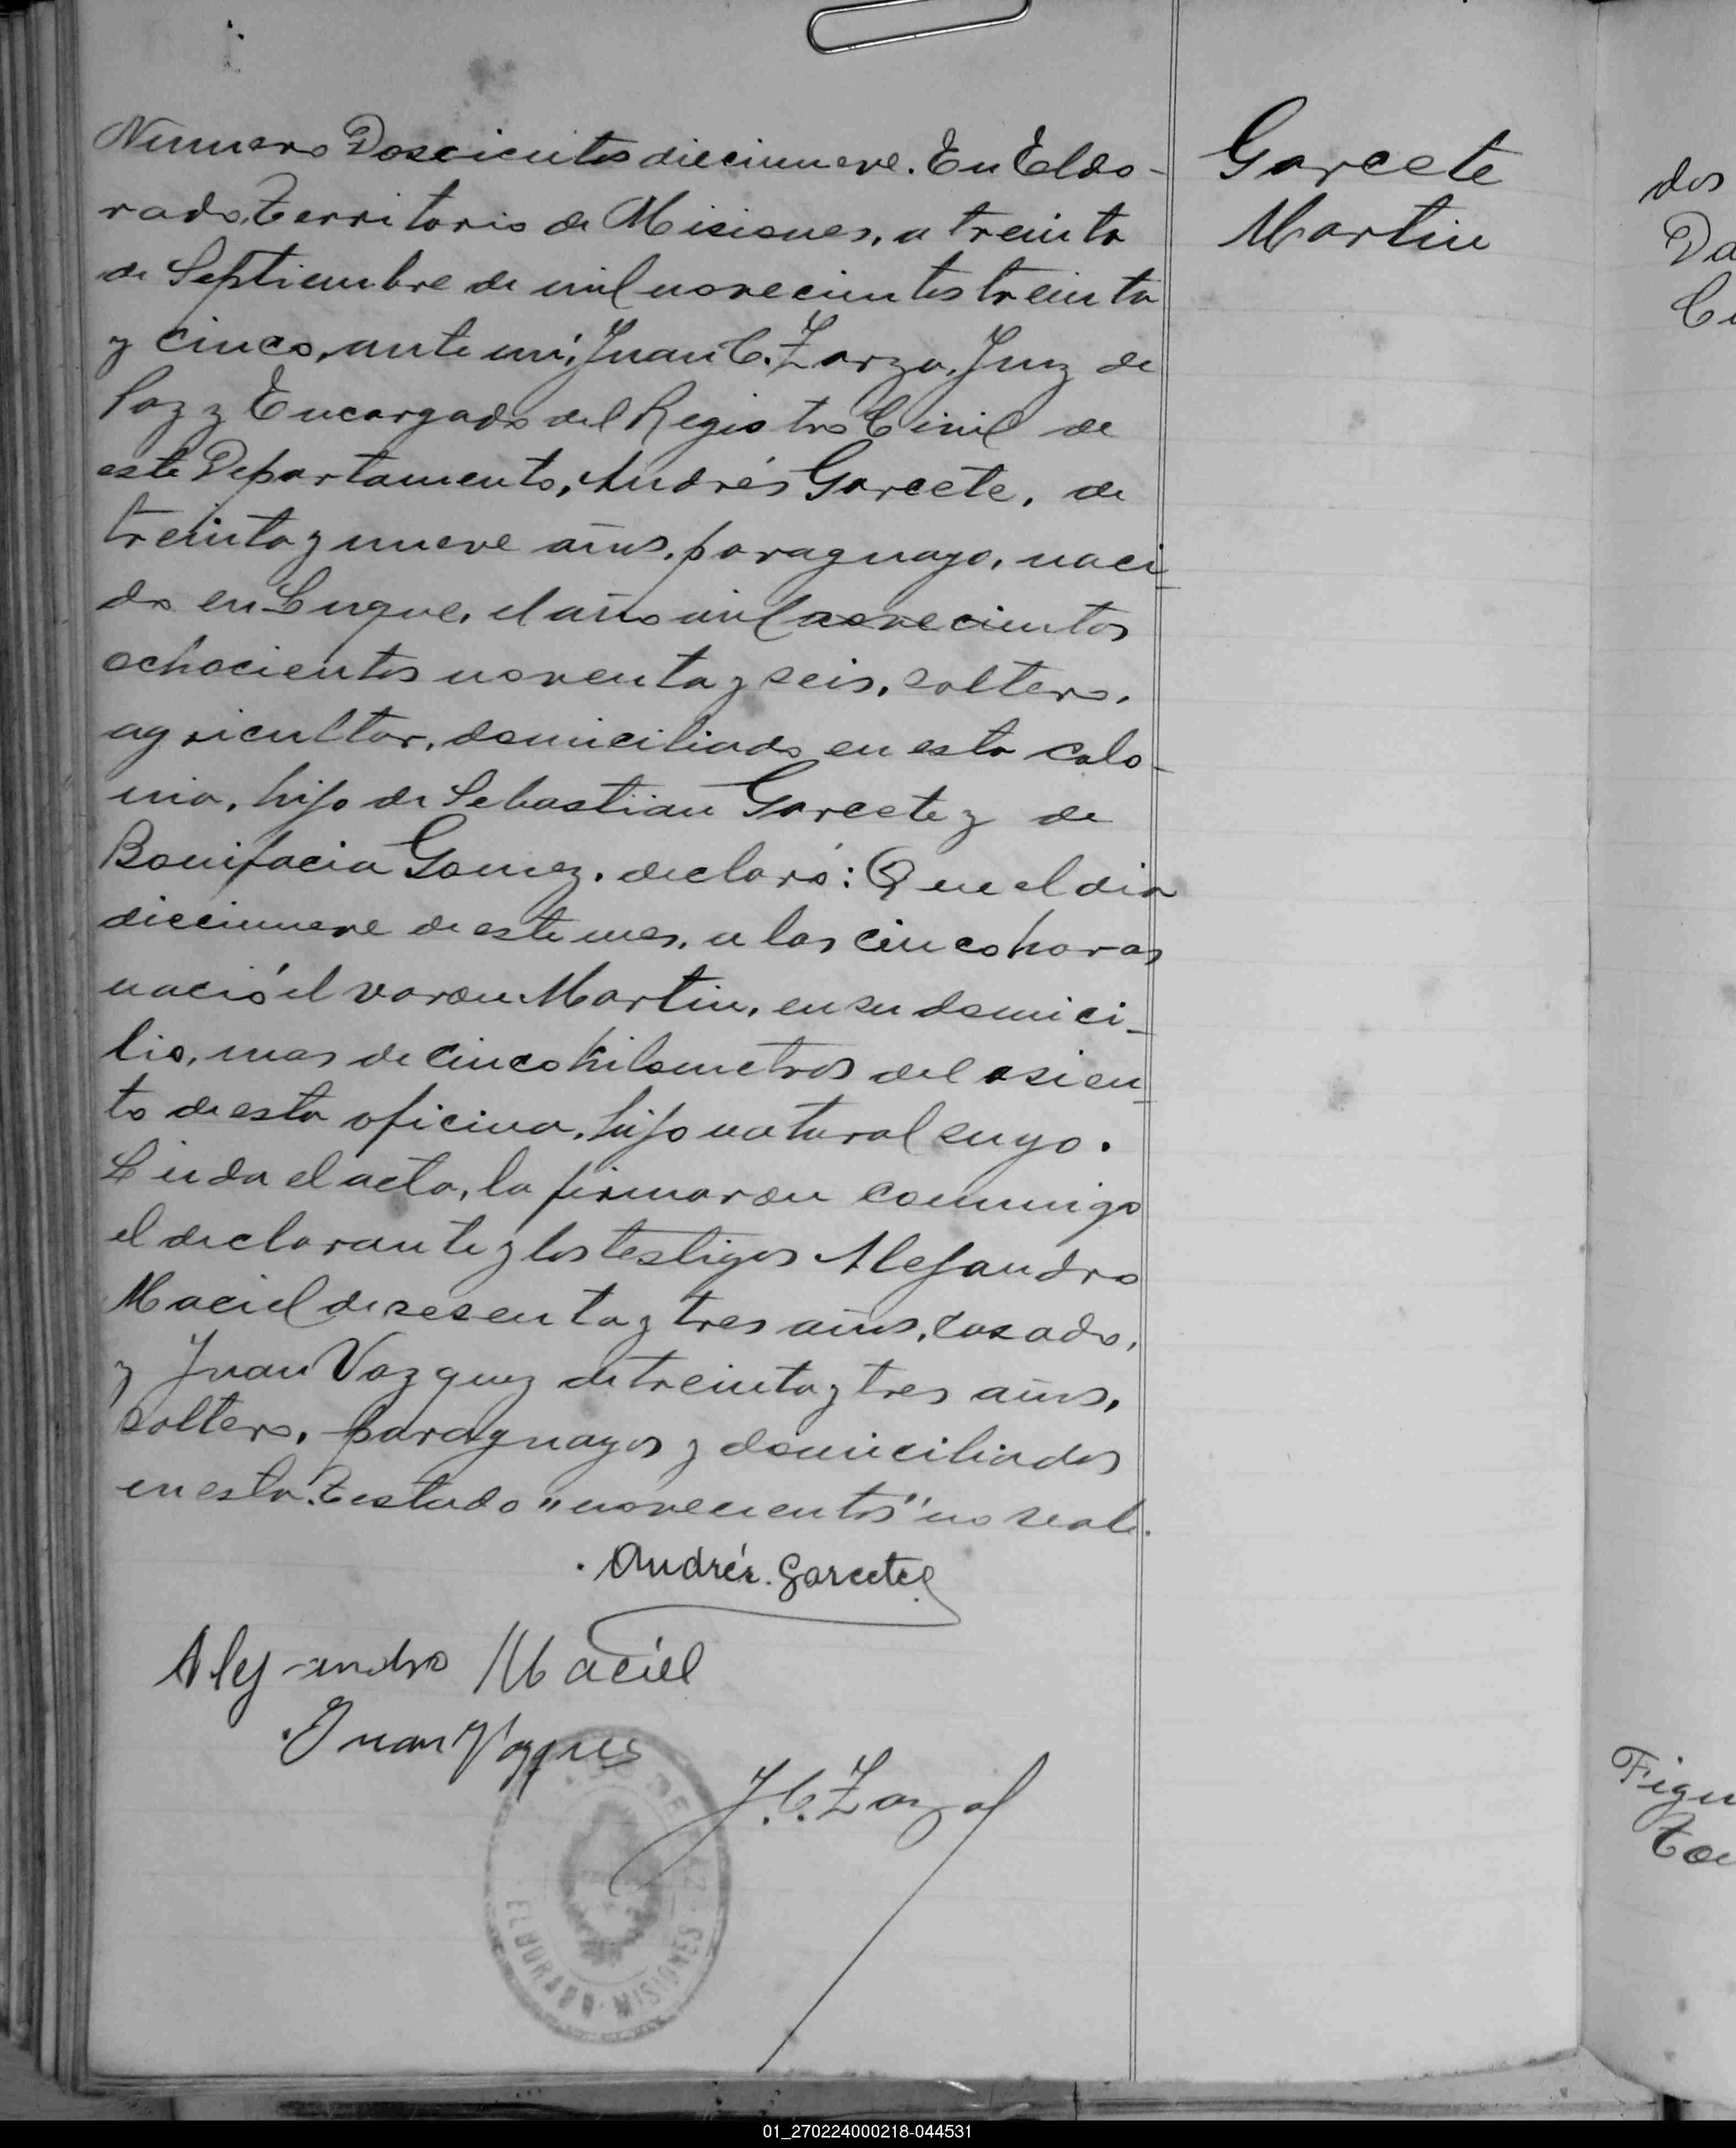 Garcete
Martin
Numero Doscientos diecinueve. En Eldo-
rado, Territorio de Misiones, a treinta
de Septiembre de mil novecientos treinta
y cinco, ante mi, Juan C. Zarza, Juez de
Paz y Encargado del Registro Civil de
este Departamento, Andrés Garcete, de
treinta y nueve años, paraguayo, naci-
do en Luque, el año mil novecientos
ochocientos noventa y seis, soltero,
agricultor, domiciliado en esta colo-
nia, hijo de Sebastian Garcete y de
Bonifacia Gomez, declaró: Que el dia
diecinueve de este mes, a las cinco horas
nació el varon Martin, en su domici-
lio, mas de cinco kilometros del asien-
to de esta oficina, hijo natural suyo.
Leida el acta, la firmaron conmigo
el declarante y los testigos Alejandro
Maciel de sesenta y tres años, casado,
y Juan Vazquez de treinta y tres años,
soltero, paraguayos y domiciliados
en esta. Testado "novecientos" no vale.
Andrés. Garcete
Alejandro Maciel
Juan Vazques
J. C. Zarza
ELDORADO MISIONES
dos
Da
Figu
01_270224000218-044531